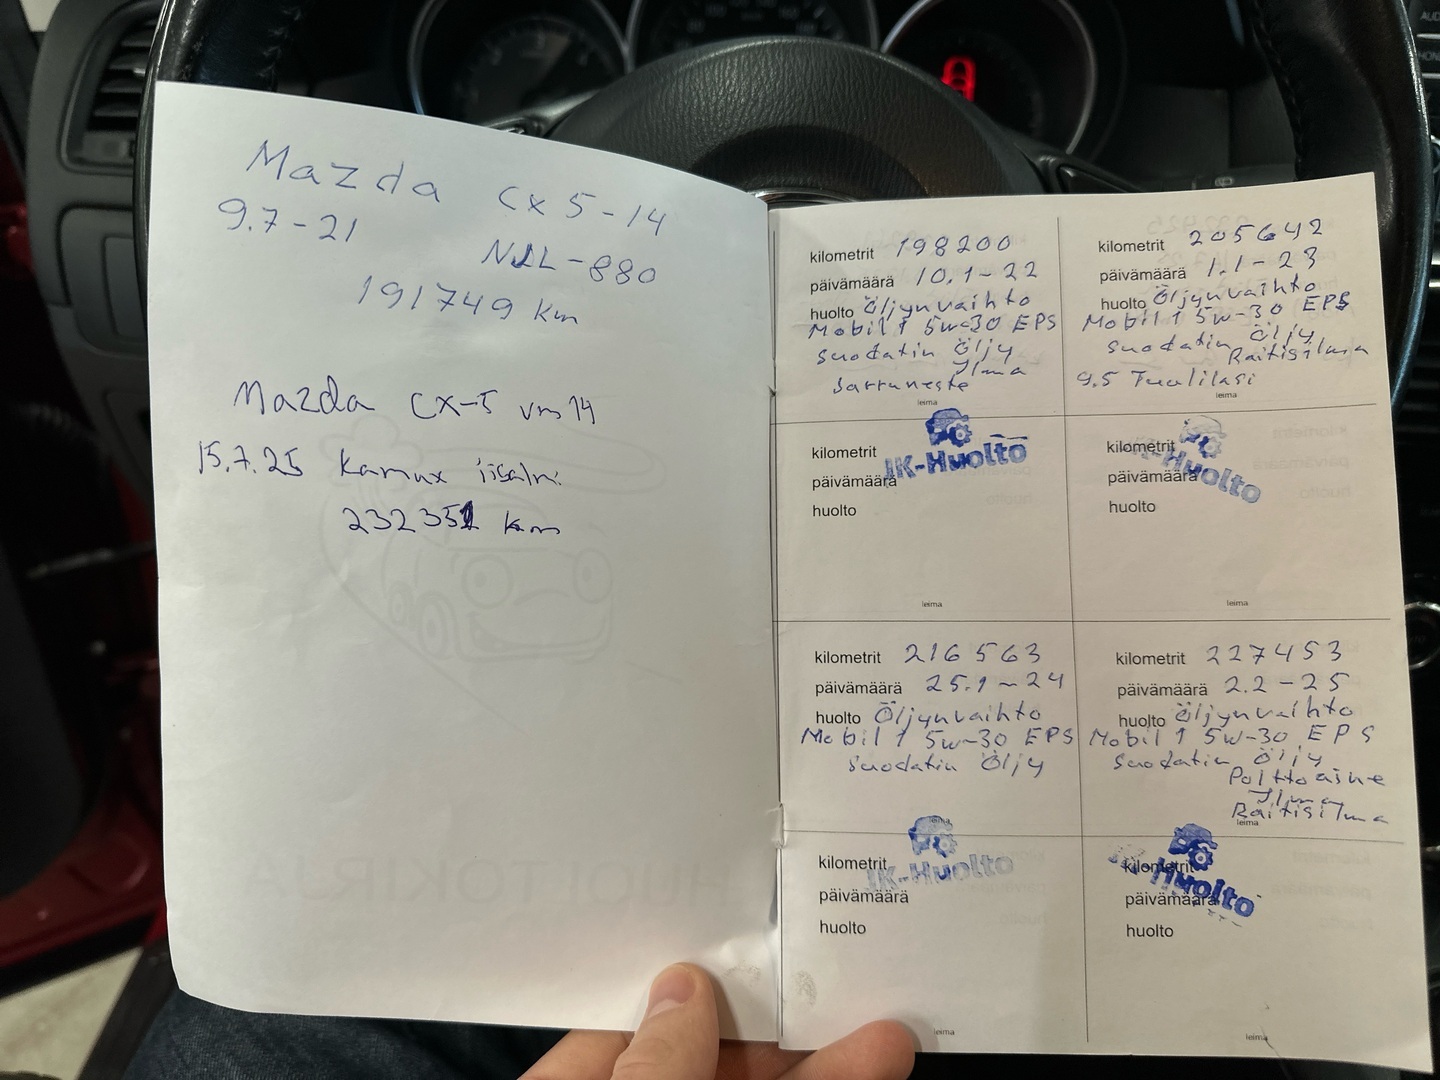 Mazda cx 5-14
9.7-21
NLL-880
191749 km
Mazda cx-5 vm 14
15.7.25 Kamux iisalmi
232351 km
kilometrit 198200
päivämäärä 10.1-22
huolto Öljynvaihto
Mobil 1 5w-30 EPS
Suodatin Öljy
Ilma
Jarruneste
leima
kilometrit
päivämäärä
huolto
JK-Huolto
leima
kilometrit 205642
päivämäärä 1.1-23
huolto Öljynvaihto
Mobil 1 5w-30 EPS
Suodatin Öljy
Raitisilma
9.5 Tuulilasi
leima
kilometrit
päivämäärä
huolto
JK-Huolto
leima
kilometrit 216563
päivämäärä 25.1-24
huolto Öljynvaihto
Mobil 1 5w-30 EPS
Suodatin Öljy
leima
kilometrit
päivämäärä
huolto
JK-Huolto
leima
kilometrit 227453
päivämäärä 2.2-25
huolto Öljynvaihto
Mobil 1 5w-30 EPS
Suodatin Öljy
Polttoaine
Ilma
Raitisilma
leima
kilometrit
päivämäärä
huolto
JK-Huolto
leima
HUOLTOKIRJA